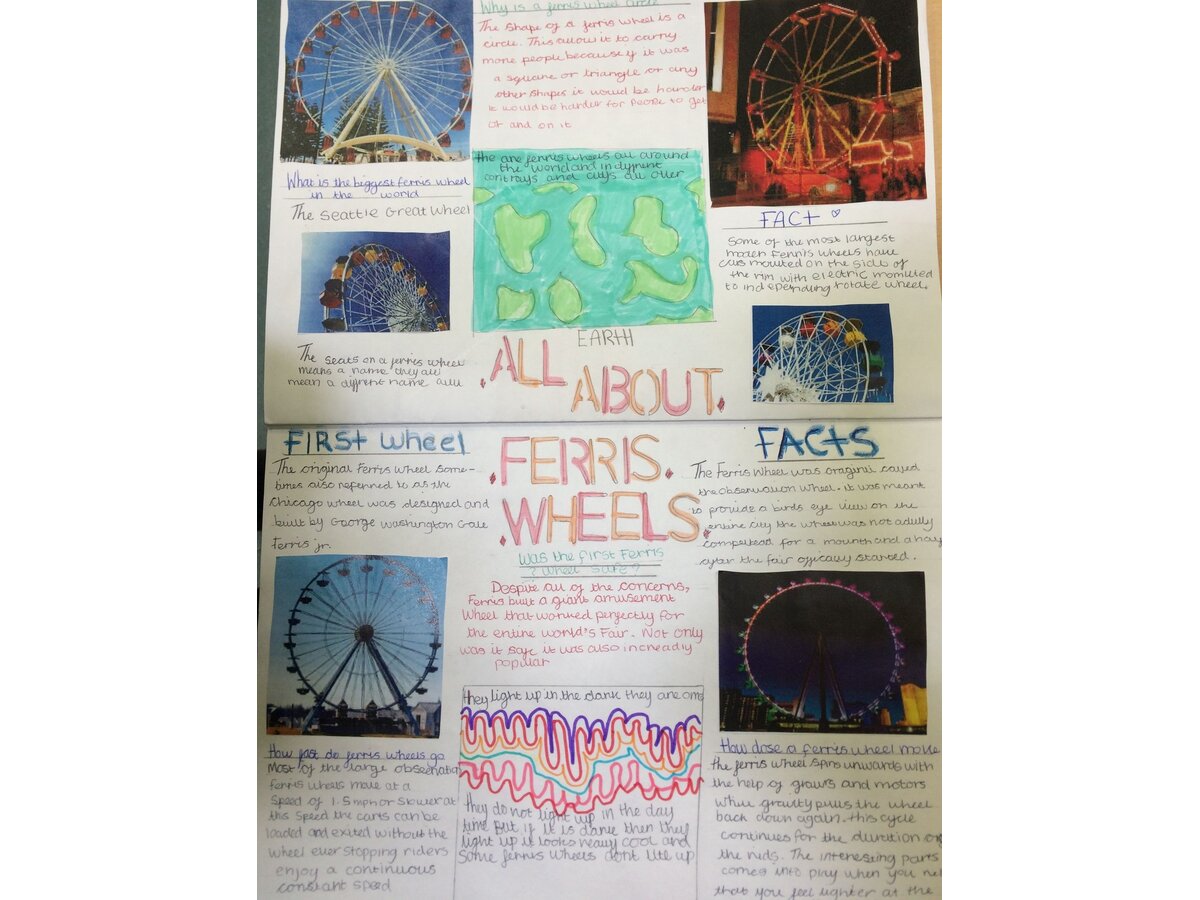 Why is a ferris wheel circle
The shape of a ferris wheel is a
circle. This allow it to carry
more people because if it was
a square or triangle or any
other shapes it would be harder
it would be harder for people to get
of and on it
What is the biggest ferris wheel
in the world
The Seattle Great Wheel
the are ferris wheels all around
the world and in dyfrent
contrays and citys all over
EARTH
FACT
Some of the most largest
moden Ferris wheels have
cars mounted on the side of
the rim with electric
to independing rotate wheel.
The seats on a ferris wheel
means a name they all
mean a dyfrent name
ALL
ABOUT
FERRIS
WHEELS
FIRST wheel
The original Ferris wheel some-
times also referred to as the
Chicago wheel was designed and
built by George Washington Gale
Ferris jr.
Was the first Ferris
? wheel safe ?
Despite all of the concerns,
Ferris built a giant amusement
wheel that worked perfectly for
the entire world's Fair. Not only
was it safe it was also increadly
popular
FACTS
The Ferris wheel was oraginal called
the observation wheel. it was meant
to provide a birds eye view on the
entire city the wheel was not
for a mounth and a hay
after the fair started.
How fast do ferris wheels go
Most of the large observation
ferris wheels move at a
speed of 1.5 mph or slower at
this speed the carts can be
loaded and exited without the
wheel ever stopping riders
enjoy a continuous
constant speed
they light up in the dark they are
they do not light up in the day
time but if it is dark then they
light up it looks reavy cool and
some ferris wheels dont lite up
How dose a ferris wheel move
the ferris wheel spins unwards with
the help of and motors
while gravity pulls the wheel
back down again. this cycle
continues for the
the rids. The interesting parts
comes into play when you
that you feel lighter at the